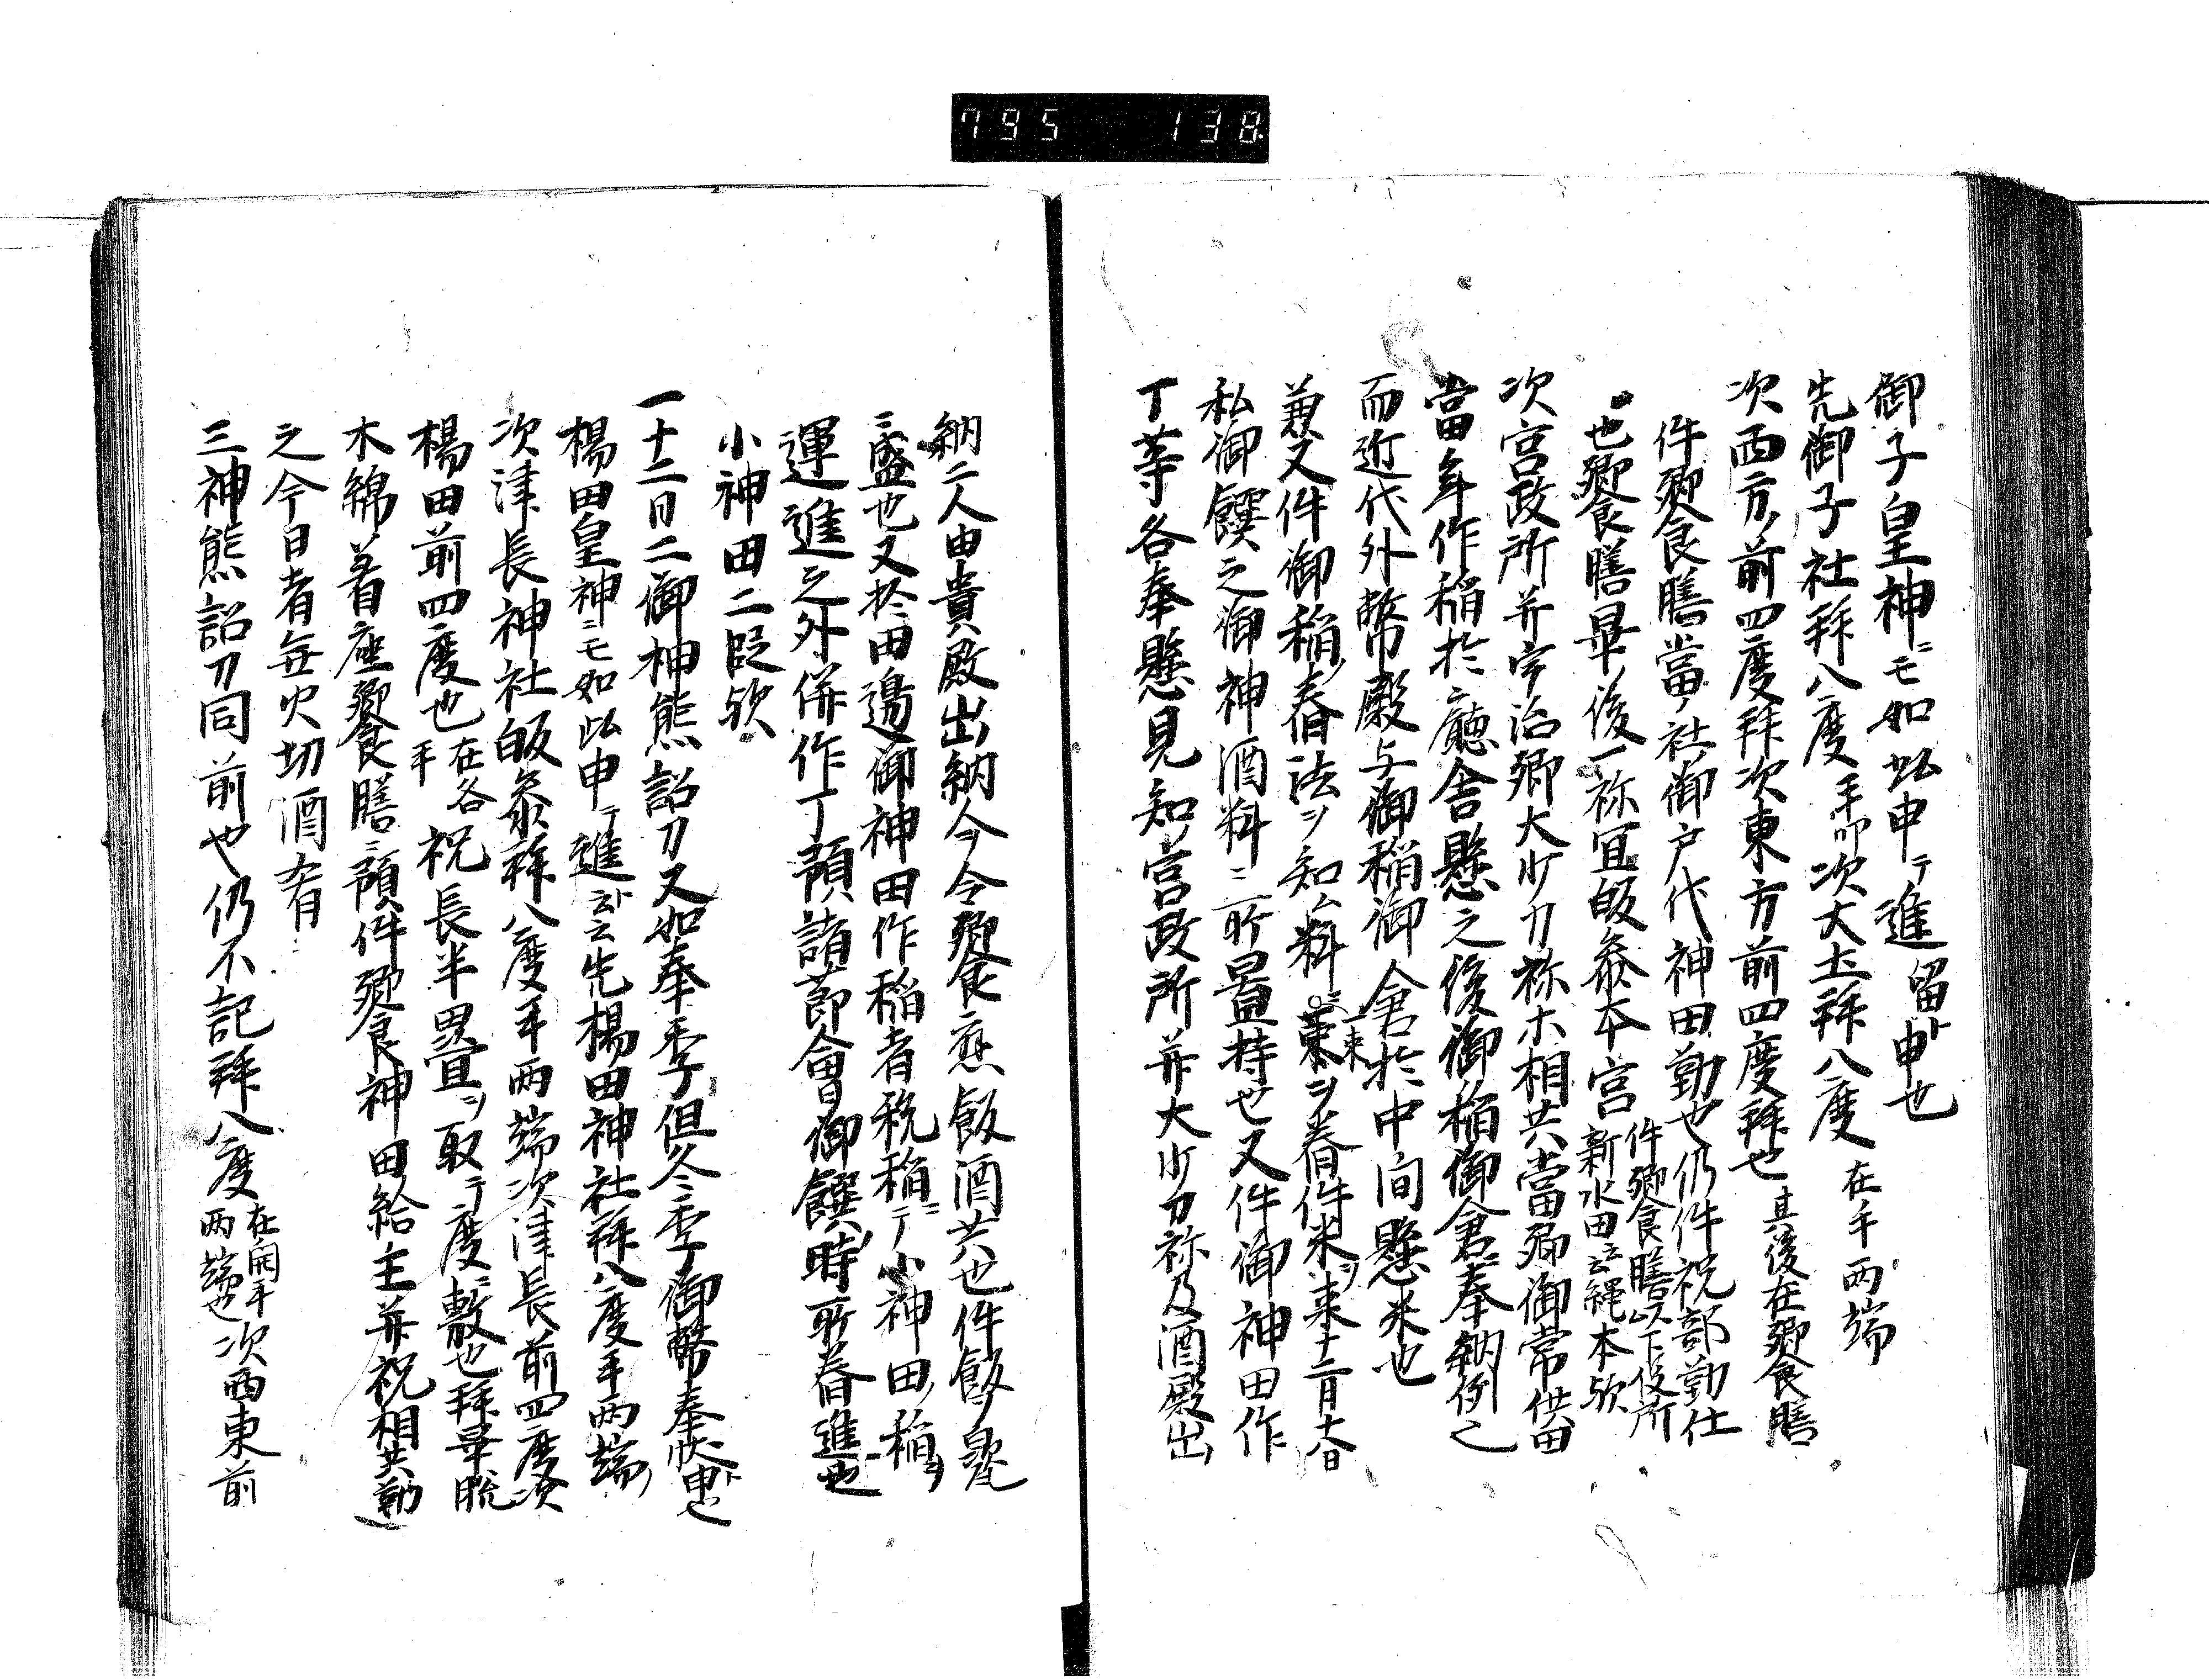 795 138
御子皇神ニモ如此申テ進留ト申也
先御子社拝八度手叩次大土拝八度在手両端
次西方ノ前四度拝次東方前四度拝也其後在饗膳
件饗膳當ノ社御戸代神田勤也仍件祝部勤仕
也饗膳畢後一祢宜皈参本宮件饗膳以下役所新水田云云縄本欤
次宮政所并宇治郷大少刀祢木相共當郷御常供田
當年作稲於廳舎懸之後御稲御倉ニ奉納例之
而近代外幣殿与御稲御倉於中間懸米也
兼又件御稲ノ舂法ヲ知ム料ニ一束ヲ舂件米ヲ来十二月十六日
私御饌之御神酒料ニ所置持也又件御神田作
丁等各奉懸見知宮政所并大少刀祢及酒殿出
納二人由貴殿出納令令饗應飯酒共也件飯ハ
ニ盛也又於田邊御神田作稲者税稲ニテ小神田ノ稲ヲ
運進之外併作丁預諸節會御饌ノ時所舂進也
小神田二段欤
一十二日二御神態詔刀又如奉季但冬季御幣奉状ト申也
楊田皇神ニモ如此申テ進ト云云先楊田神社拝八度手両端
次津長神社皈参拝八度手両端次津長前四度次
楊田前四度也在各手祝長半畳ヲ取テ度ニ敷也拝畢脱
木綿着座饗膳ニ預件饗神田給主并祝相共勤
之今日者無火切酒肴
三神態詔刀同前也仍不記拝八度在開手両端也次西東前